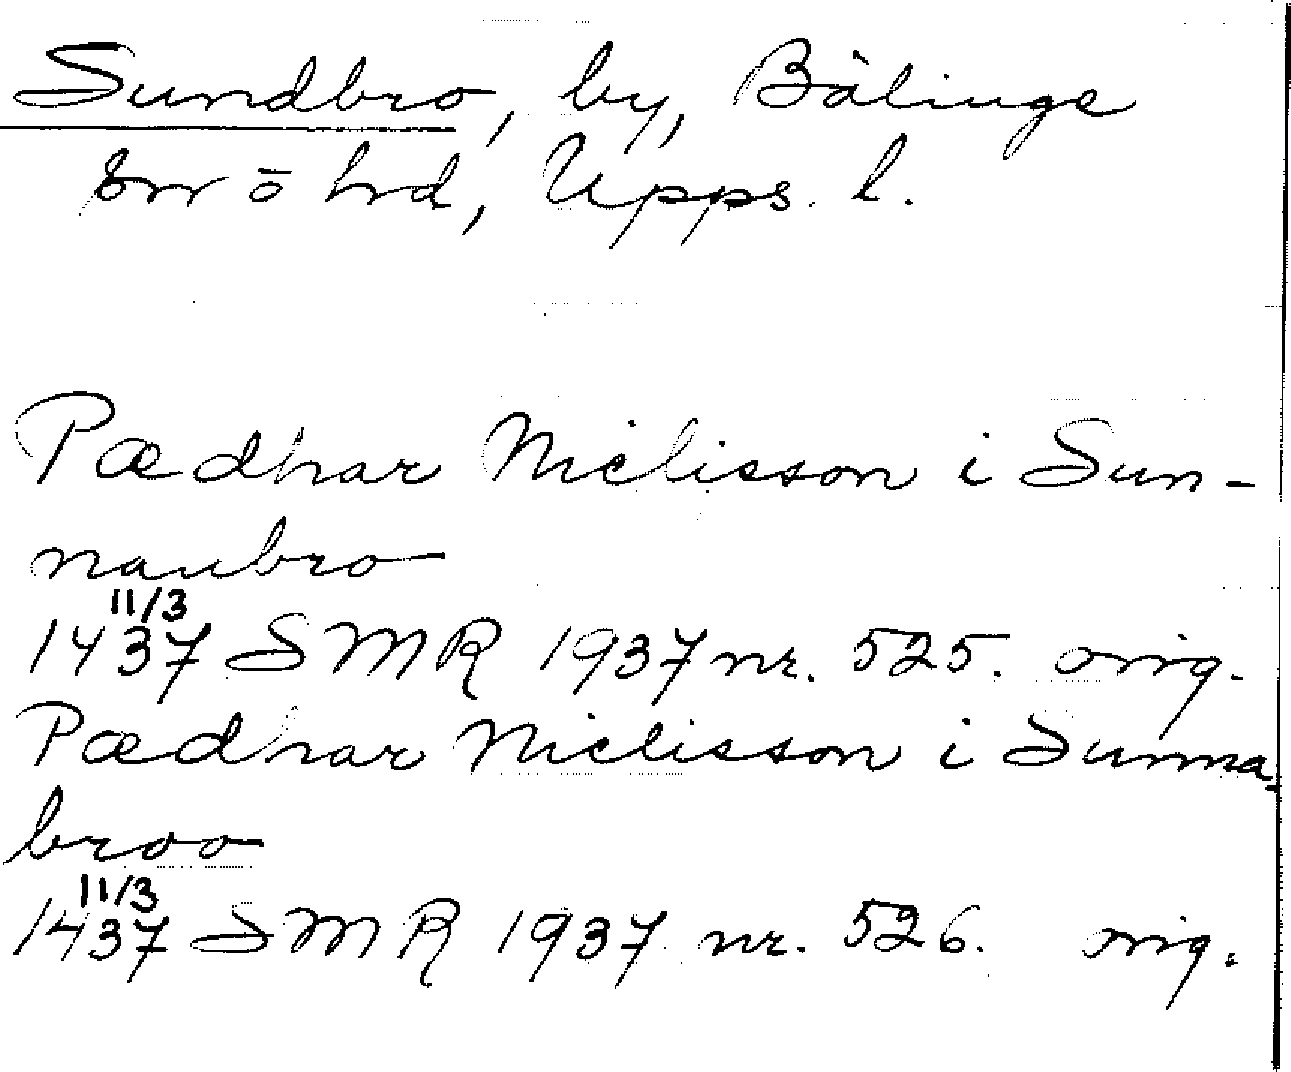 Sundbro, by, Bälinge
sn o hd, Upps. l.
Pædhar Niclisson i Sun-
nanbro
11/3
1437 SMR 1937 nr. 525. orig.
Pædhar Niclisson i Sunna-
broo
11/3
1437 SMR 1937 nr. 526. orig.